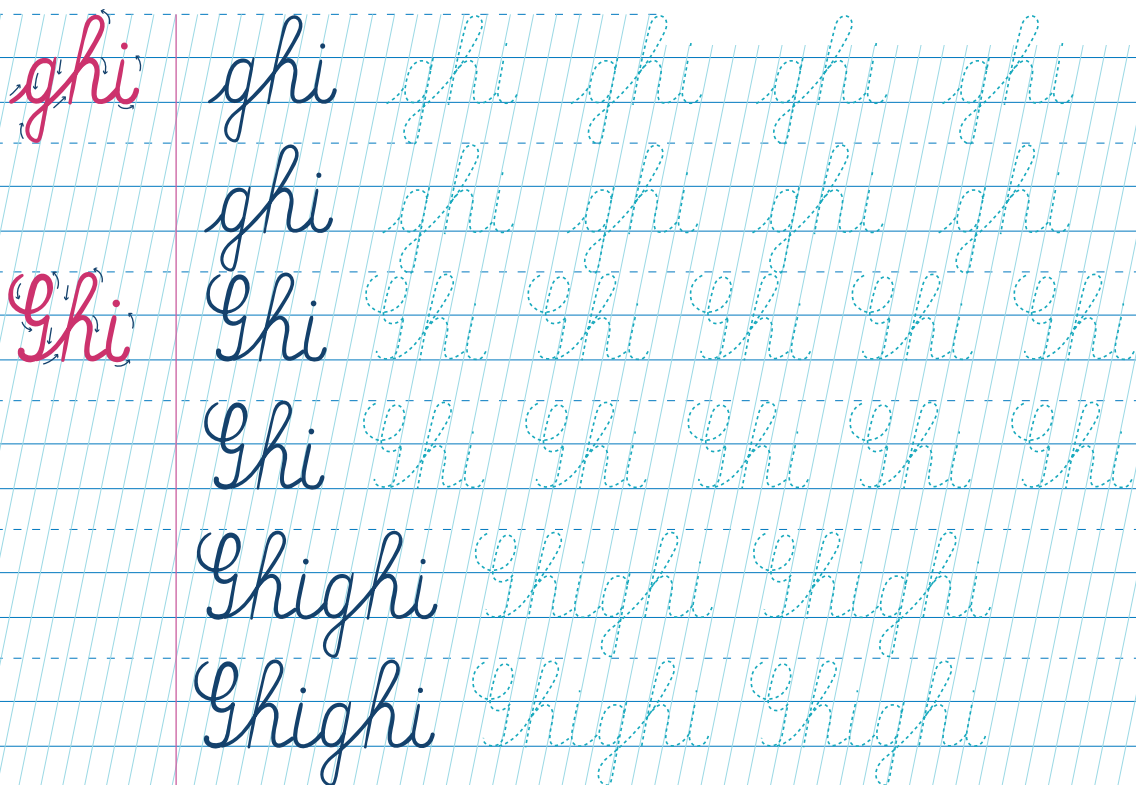 ghi ghi ghi ghi ghi ghi
ghi ghi ghi ghi ghi
Ghi Ghi Ghi Ghi Ghi Ghi Ghi
Ghi Ghi Ghi Ghi Ghi Ghi
Ghighi Ghighi Ghighi
Ghighi Ghighi Ghighi